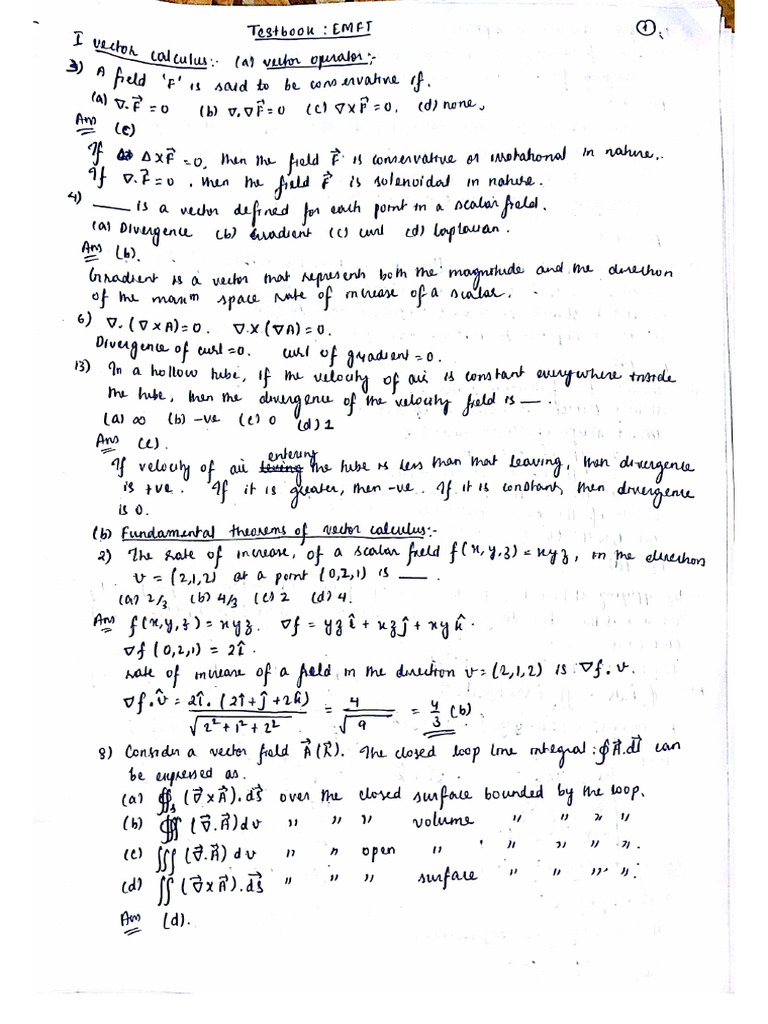 Testbook : EMFT
1
I vector calculus:- (a) vector operator:-
3) A field 'F' is said to be conservative if.
(a) ∇.F⃗ = 0 (b) ∇.∇F⃗ = 0 (c) ∇×F⃗ = 0. (d) none.
Ans (c)
If Δ×F⃗ = 0, then the field F⃗ is conservative or irrotational in nature.
If ∇.F⃗ = 0, then the field F⃗ is solenoidal in nature.
4) ____ is a vector defined for each point in a scalar field.
(a) Divergence (b) Gradient (c) curl (d) laplacian.
Ans (b).
Gradient is a vector that represents both the magnitude and the direction
of the maxᵐ space rate of increase of a scalar.
6) ∇.(∇×A)=0. ∇×(∇A)=0.
Divergence of curl=0. curl of gradient=0.
13) In a hollow tube, if the velocity of air is constant everywhere inside
the tube, then the divergence of the velocity field is __.
(a) ∞ (b) -ve (c) 0 (d) 1
Ans (c).
If velocity of air entering the tube is less than that leaving, then divergence
is +ve. If it is greater, then -ve. If it is constant, then divergence
is 0.
(b) Fundamental theorems of vector calculus:-
2) The rate of increase, of a scalar field f(x,y,z) = xyz, in the direction
v = (2,1,2) at a point (0,2,1) is __.
(a) 2/3 (b) 4/3 (c) 2 (d) 4.
Ans f(x,y,z) = xyz. ∇f = yz î + xz ĵ + xy k̂.
∇f (0,2,1) = 2î.
rate of increase of a field, in the direction v = (2,1,2) is ∇f. v.
∇f.v̂ = 2î.(2î+ĵ+2k̂) / √(2²+1²+2²) = 4/√9 = 4/3 (b).
8) Consider a vector field A⃗(R⃗). The closed loop line integral : ∮A⃗.dl⃗ can
be expressed as.
(a) ∯s (∇⃗×A⃗).ds⃗ over the closed surface bounded by the loop.
(b) ∰ (∇⃗.A⃗)dv " " " volume " " " "
(c) ∭ (∇⃗.A⃗) dv " " open " " " " ".
(d) ∬ (∇⃗×A⃗).ds⃗ " " " surface " " " ".
Ans (d).